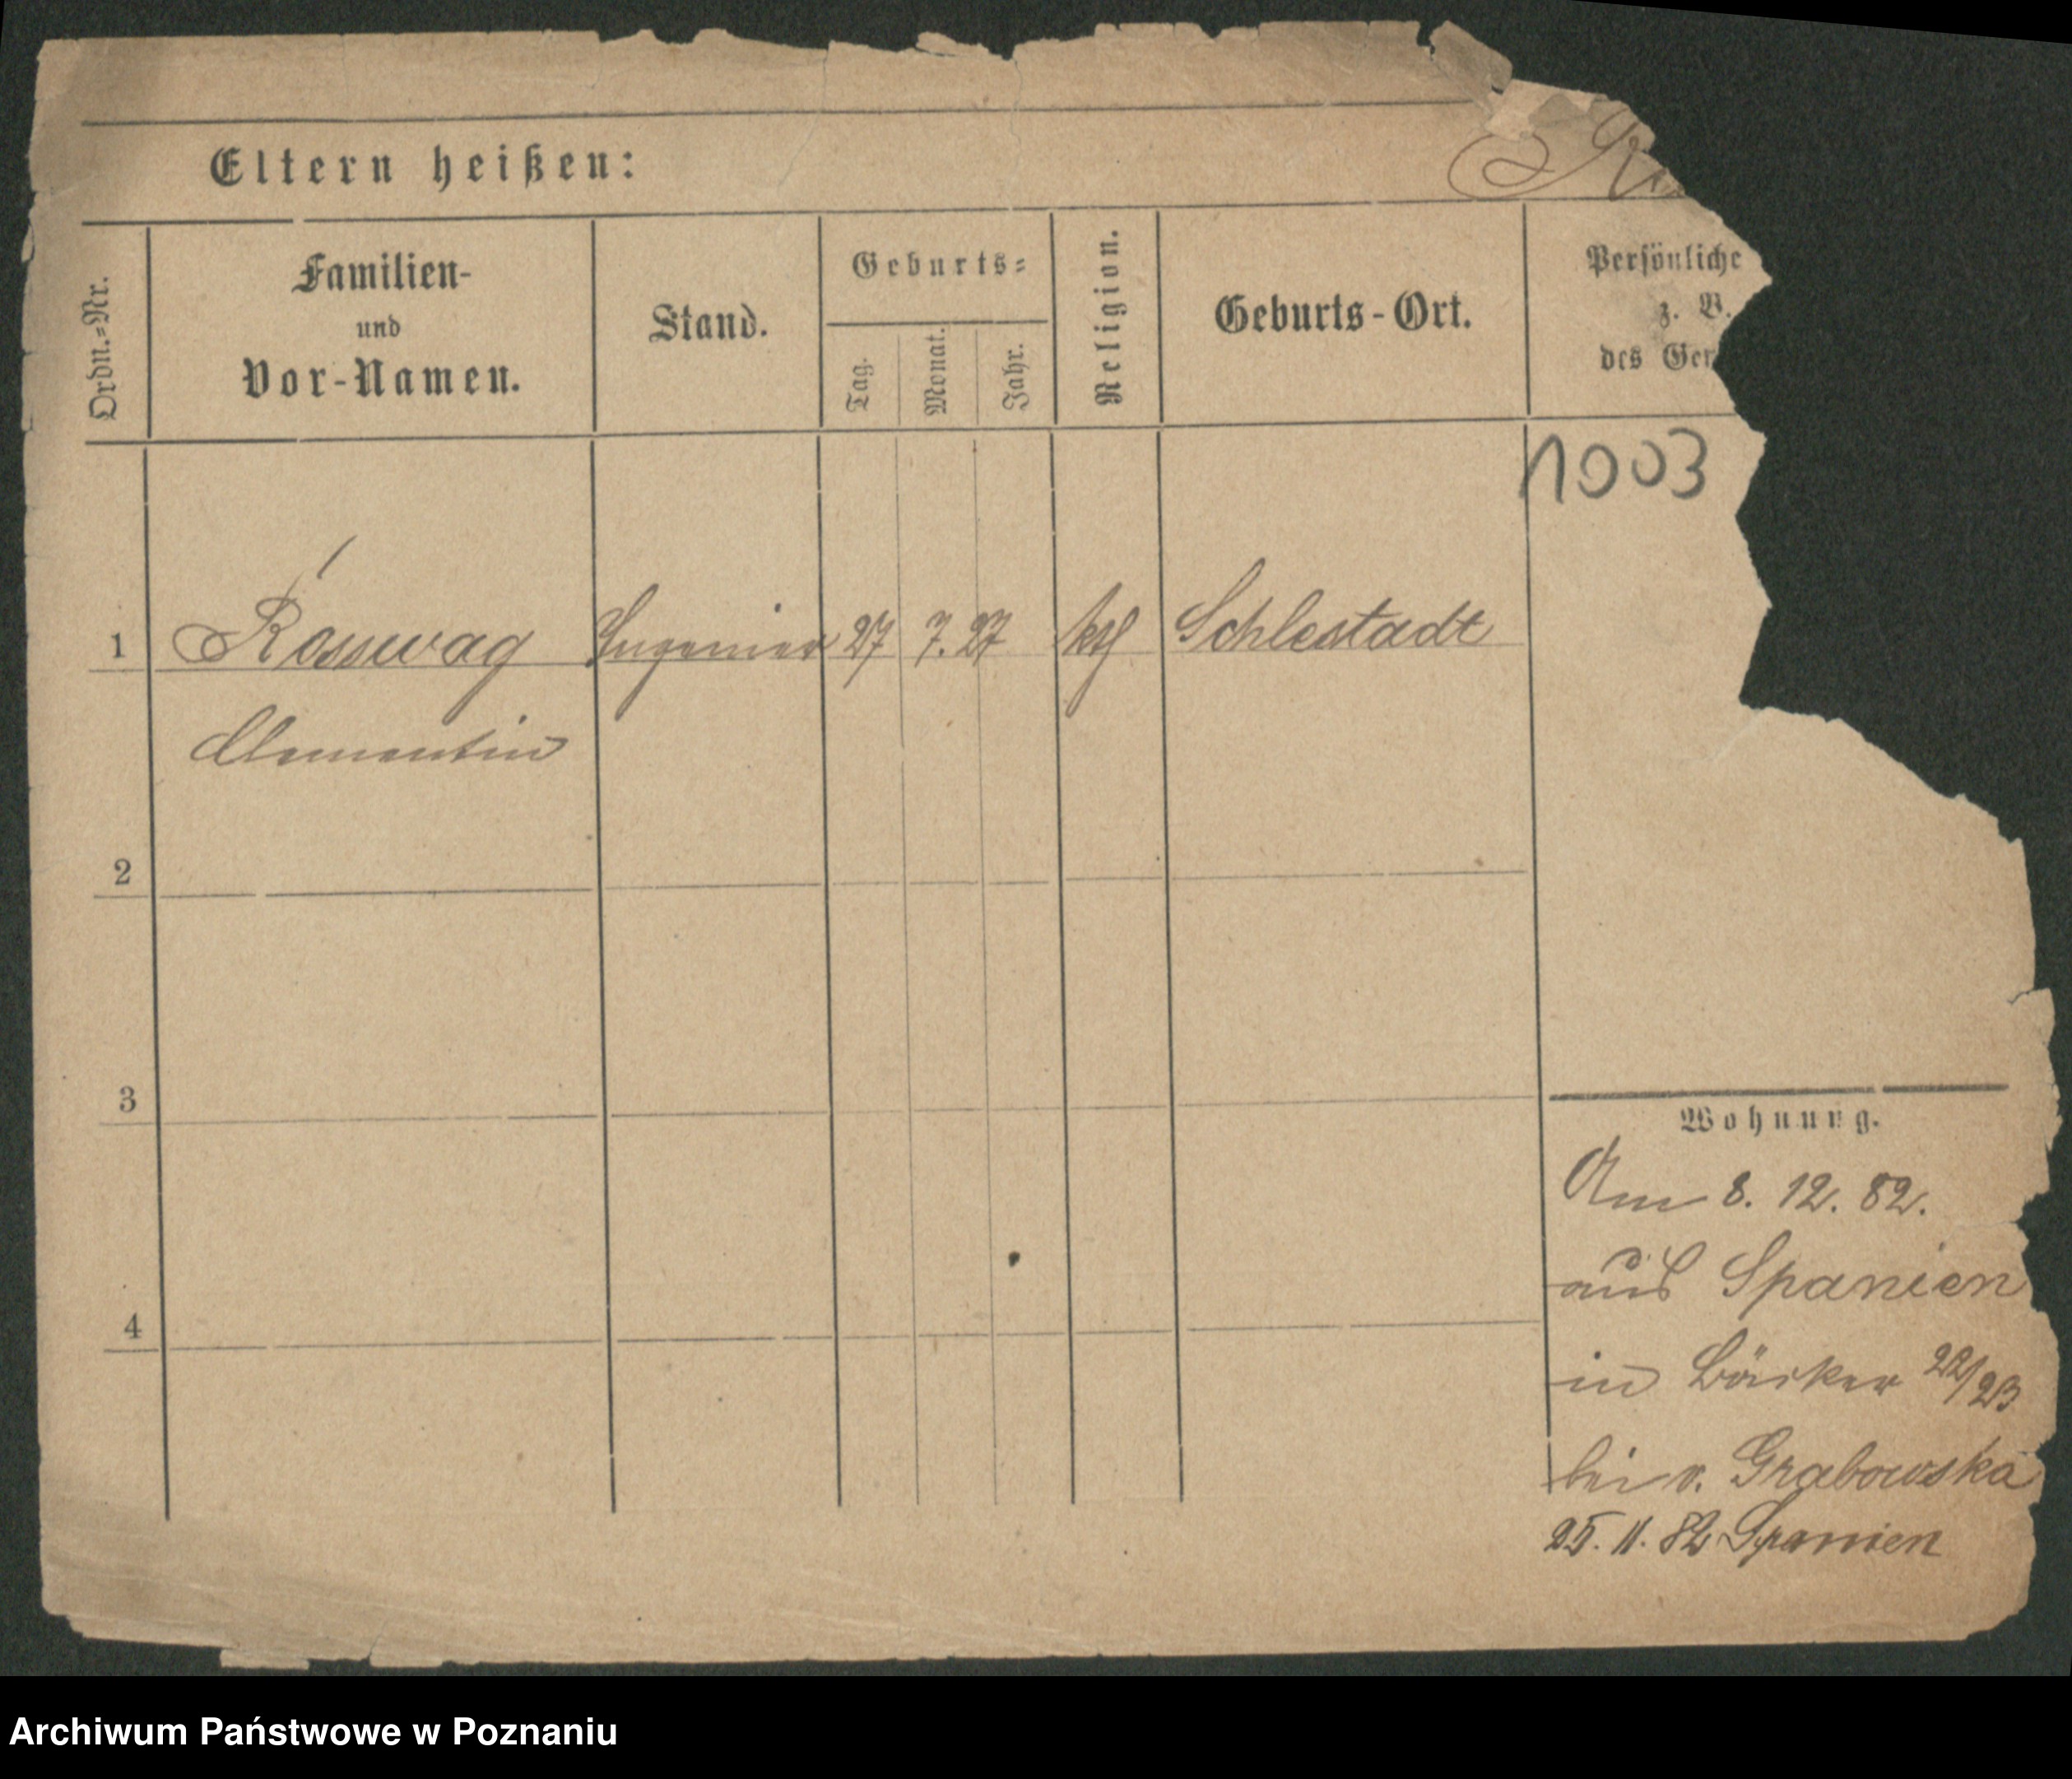 Eltern heißen:
Ordn.=Nr.
Familien-
und
Vor-Namen.
Stand.
Geburts=
Tag.
Monat.
Jahr.
Religion.
Geburts-Ort.
Persönliche
z. B.
des Ger
1003
1 Rosswag Ingenier 27 7. 27 kth Schlestadt
Clementin
2
3
4
Wohnung.
Am 8. 12. 82.
aus Spanien
in 22/23
bei v. Grabowska
25. 11. 82 Spanien
Archiwum Państwowe w Poznaniu